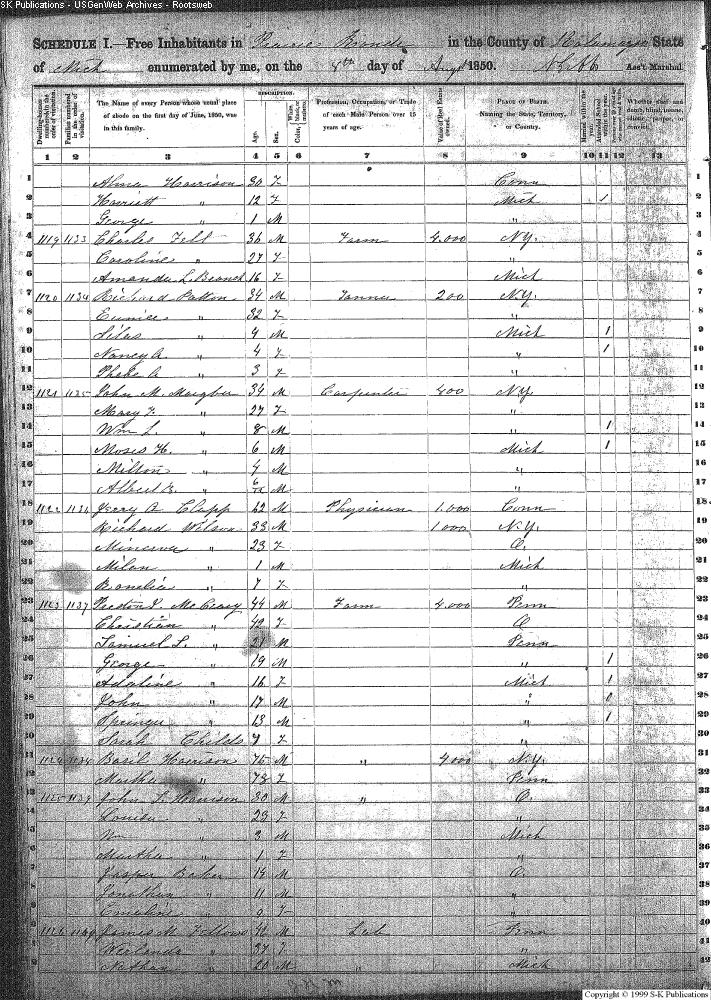 S-K Publications - USGenWeb Archives - Rootsweb
SCHEDULE I.—Free Inhabitants in Prairie Ronde in the County of Kalamazoo State
of Mich enumerated by me, on the 8th day of Augt 1850. Ass't. Marshal.
DESCRIPTION.
Dwelling-houses numbered in the order of visitation. Families numbered in the order of visitation. The Name of every Person whose usual place of abode on the first day of June, 1850, was in this family. Age. Sex. White, black, or mulatto. Color, Profession, Occupation, or Trade of each Male Person over 15 years of age. Value of Real Estate owned. PLACE OF BIRTH. Naming the State, Territory, or Country. Married within the year. Attended School within the year. Whether deaf and dumb, blind, insane, idiotic, pauper, or convict.
1 2 3 4 5 6 7 8 9 10 11 12 13
1 Alma Harrison 30 F Conn 1
2 Harriett " 12 F Mich 1 2
3 George " 1 M " 3
4 1119 1133 Charles Felt 36 M Farm 4.000 N.Y. 4
5 Caroline " 27 F " 5
6 Amanda L. Branch 16 F Mich 6
7 1120 1134 Richard Patton 34 M Tanner 200 N.Y. 7
8 Eunice " 32 F " 8
9 Silas " 9 M Mich 1 9
10 Nancy A. " 4 F " 1 10
11 Phebe A " 3 F " 11
12 1121 1135 John M. 34 M Carpenter 400 N.Y. 12
13 Mary F. " 27 F " 13
14 Wm L. " 8 M " 1 14
15 Moses H. " 6 M Mich 1 15
16 Milton " 4 M " 16
17 Albert B. " 6/12 M " 17
18 1122 1136 A Clapp 42 M Physician 1.000 Conn 18
19 Richard Wilson 33 M 1000 N.Y. 19
20 Minerva " 23 F O. 20
21 Milan " 1 M Mich 21
22 " 7 F " 22
23 1123 1137 McCreary 44 M Farm 4.000 Penn 23
24 Christian " 42 F O 24
25 Samuel L. " 21 M Penn 25
26 George " 19 M " 1 26
27 Adaline " 16 F Mich 1 27
28 John " 17 M " 28
29 Springer " 13 M " 1 29
30 Sarah Childs 9 F " 30
31 1124 1138 Basil Harrison 75 M " 4.000 N.Y. 31
32 Martha " 78 F Penn 32
33 1125 1139 John S. Harrison 30 M " O. 33
34 Louisa " 23 F " 34
35 Wm " 3 M Mich 35
36 Martha " 1 F " 36
37 Jasper Baker 14 M O. 37
38 Jonathan " 11 M " 38
39 Emeline " 9 F " 39
40 1126 1140 James M. Fellows 42 M Lab Penn 40
41 " 37 F " 41
42 Nathan " 20 M " Mich 42
Copyright © 1999 S-K Publications